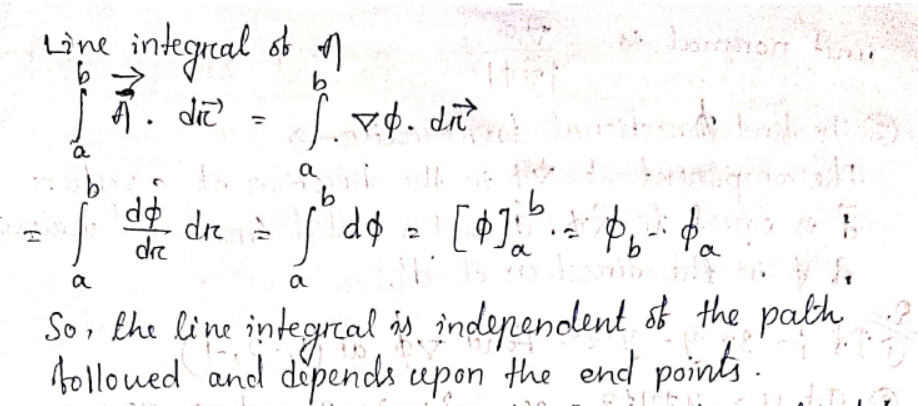 Line integral of A
∫_a^b A⃗ . dr⃗ = ∫_a^b ∇φ . dr⃗
= ∫_a^b dφ/dr dr = ∫_a^b dφ = [φ]_a^b = φ_b - φ_a
So, the line integral is independent of the path
followed and depends upon the end points.